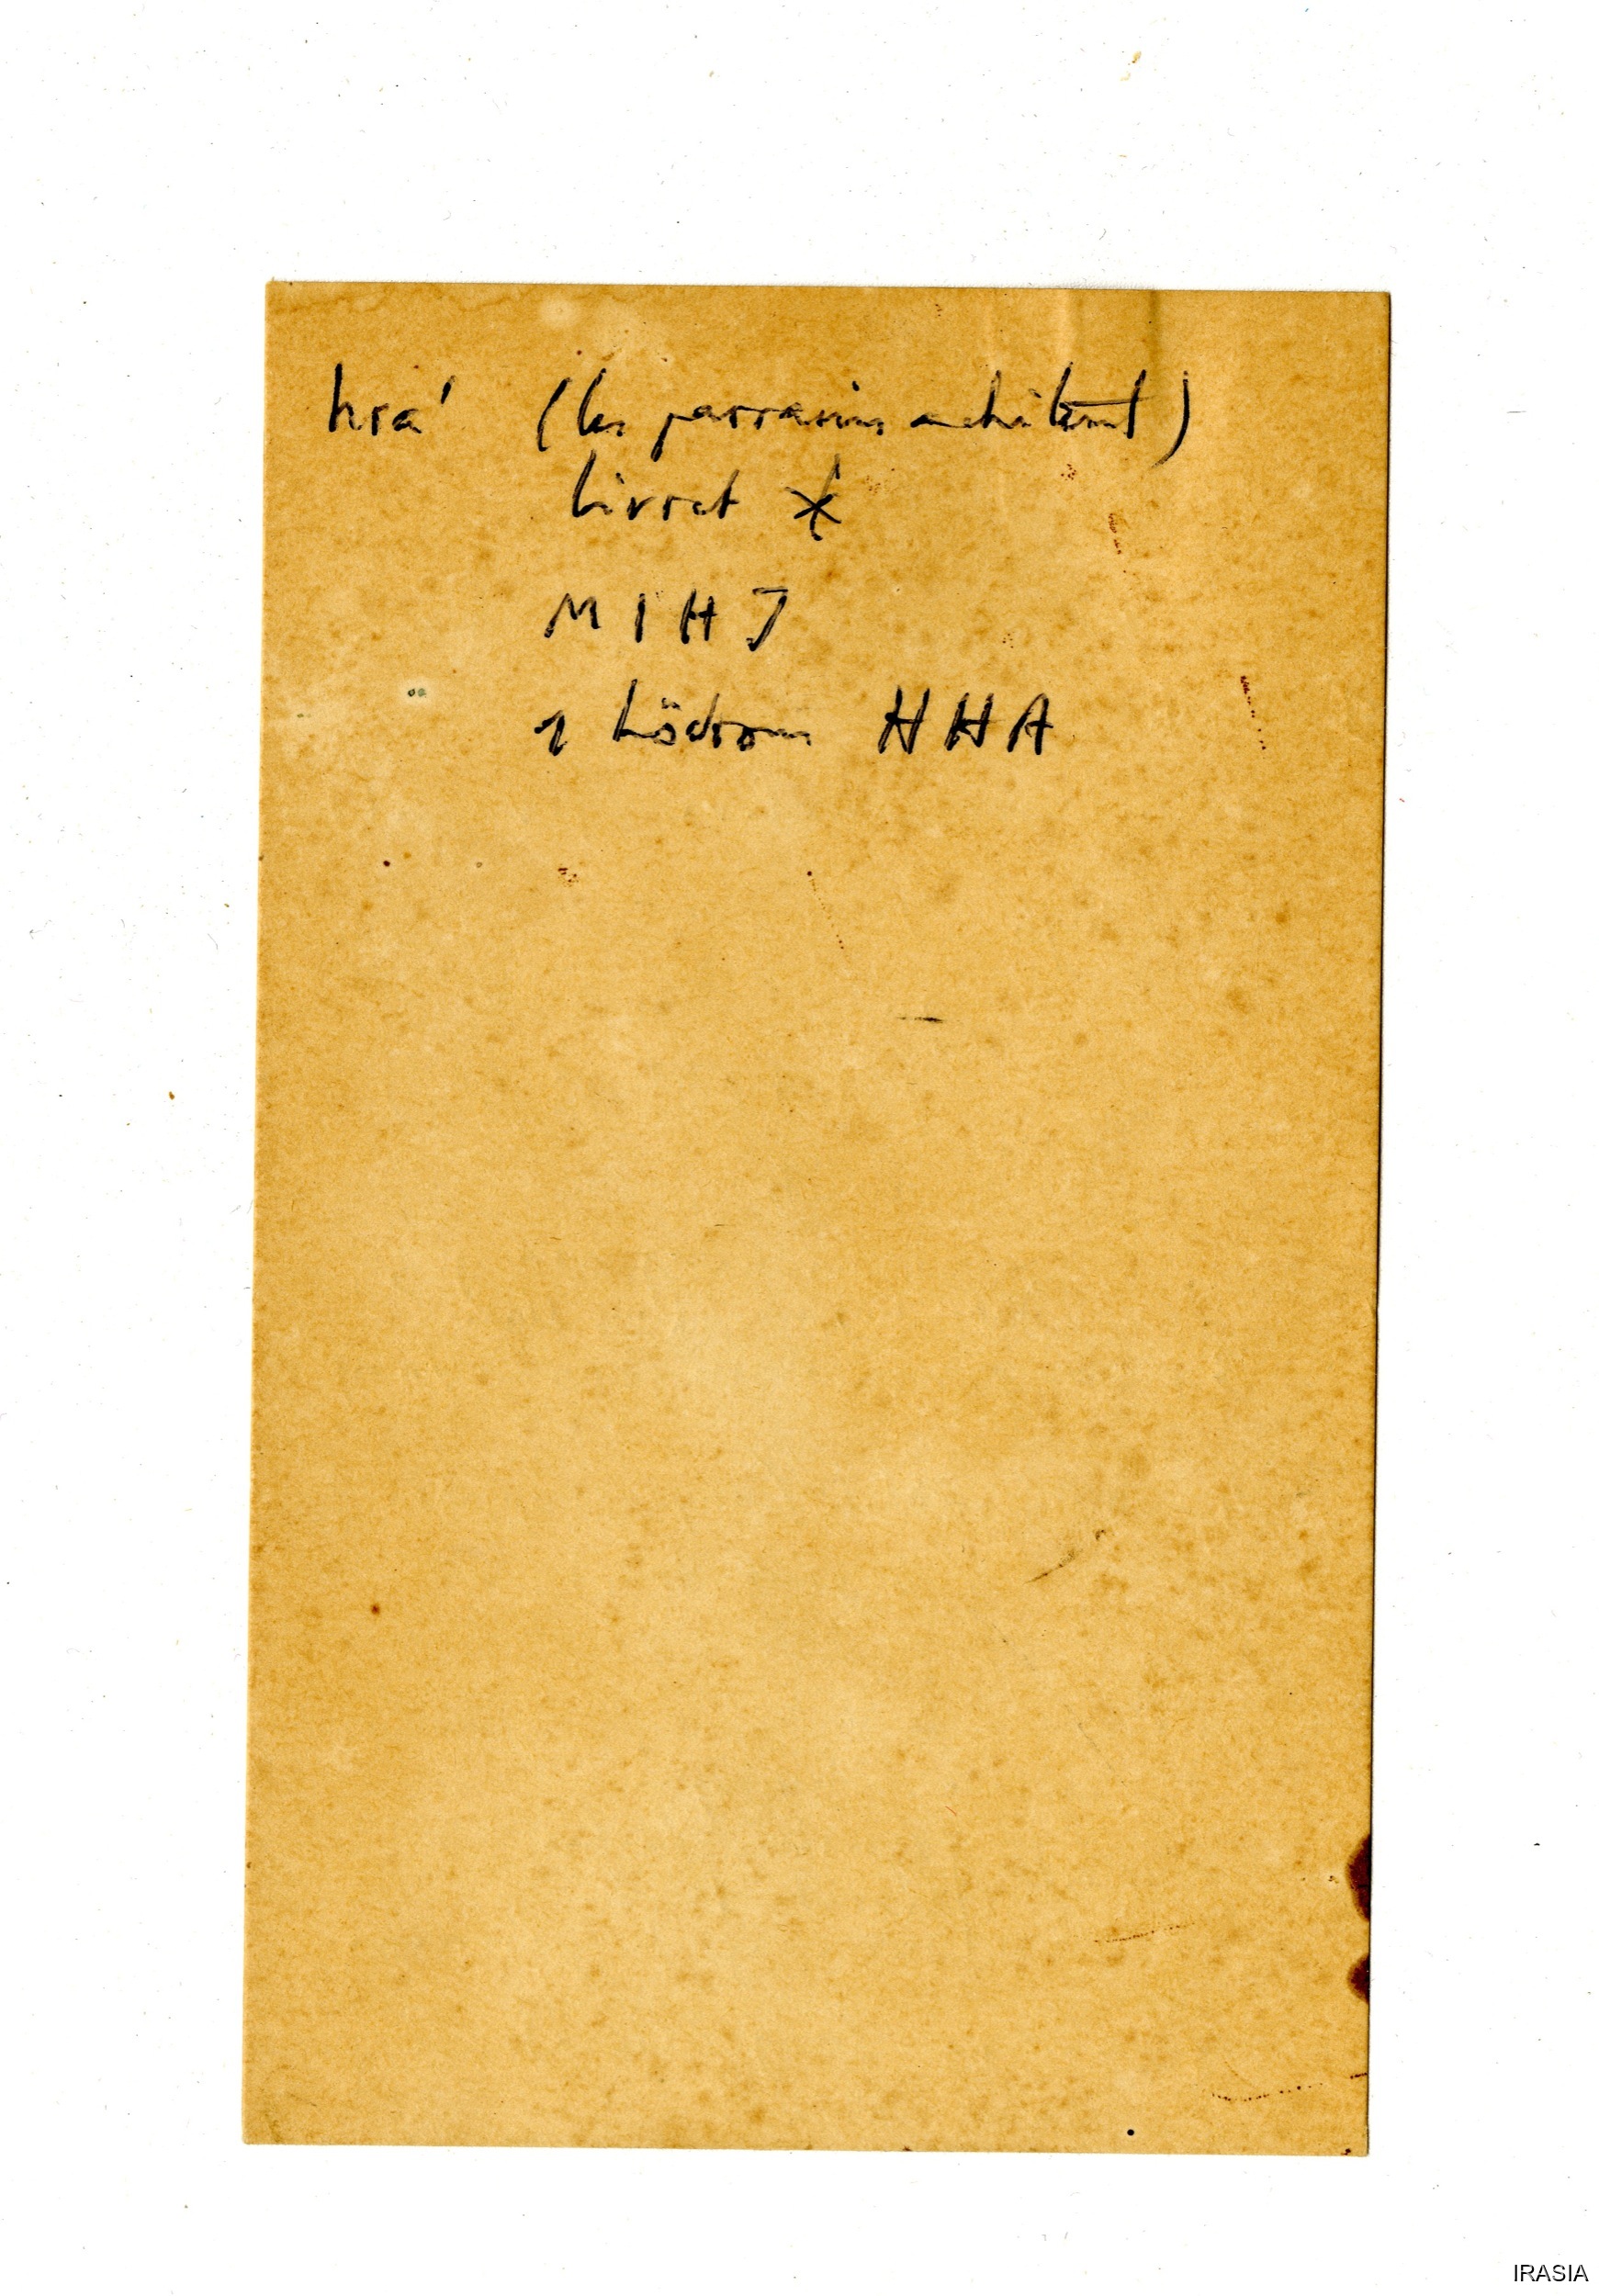 hra' (les parrains achètent)
livret *
M I H J
1 HHA
IRASIA